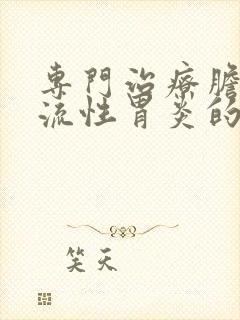 專門治療膽
流性胃炎的
笑天